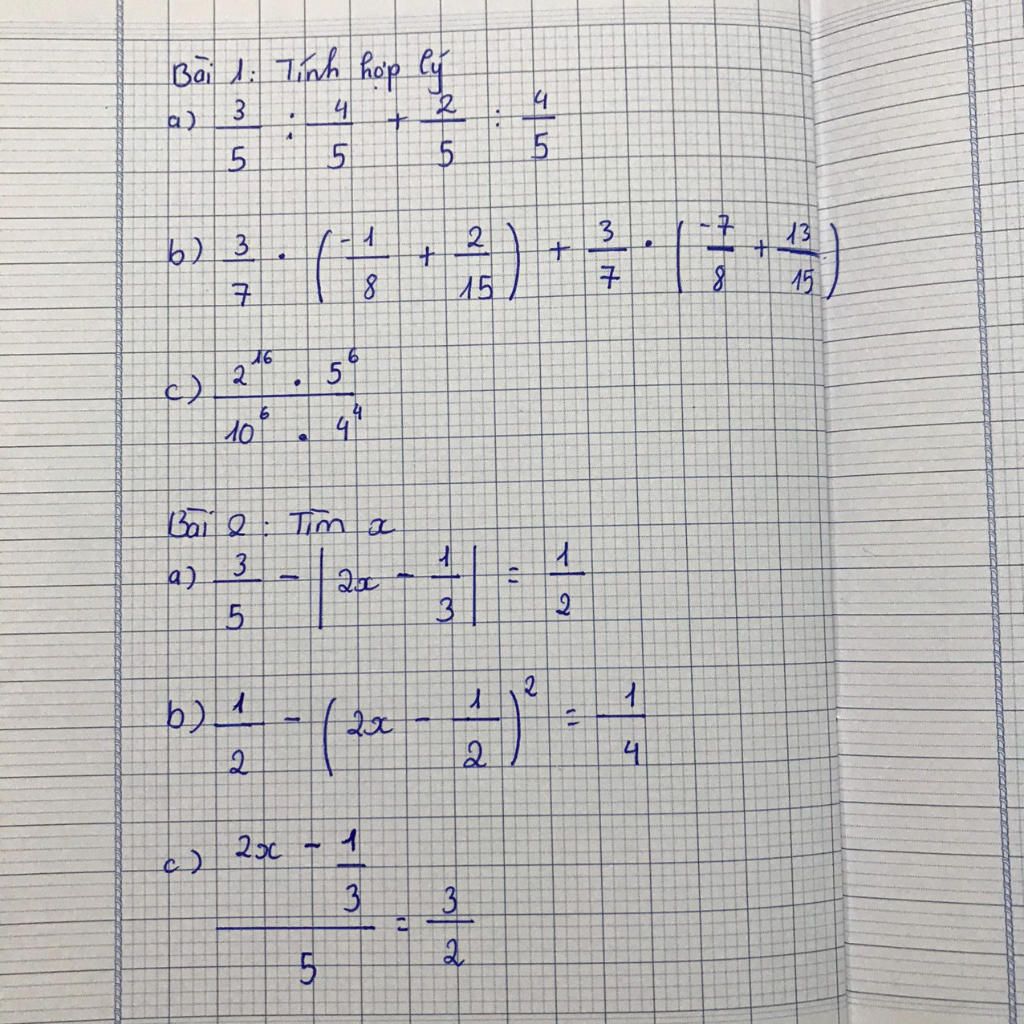 Bài 1: Tính hợp lý
a) 3/5 : 4/5 + 2/5 : 4/5
b) 3/7 . (-1/8 + 2/15) + 3/7 . (-7/8 + 13/15)
c) (2^16 . 5^6)/(10^6 . 4^4)
Bài 2: Tìm x
a) 3/5 - |2x - 1/3| = 1/2
b) 1/2 - (2x - 1/2)^2 = 1/4
c) (2x - 1/3)/5 = 3/2